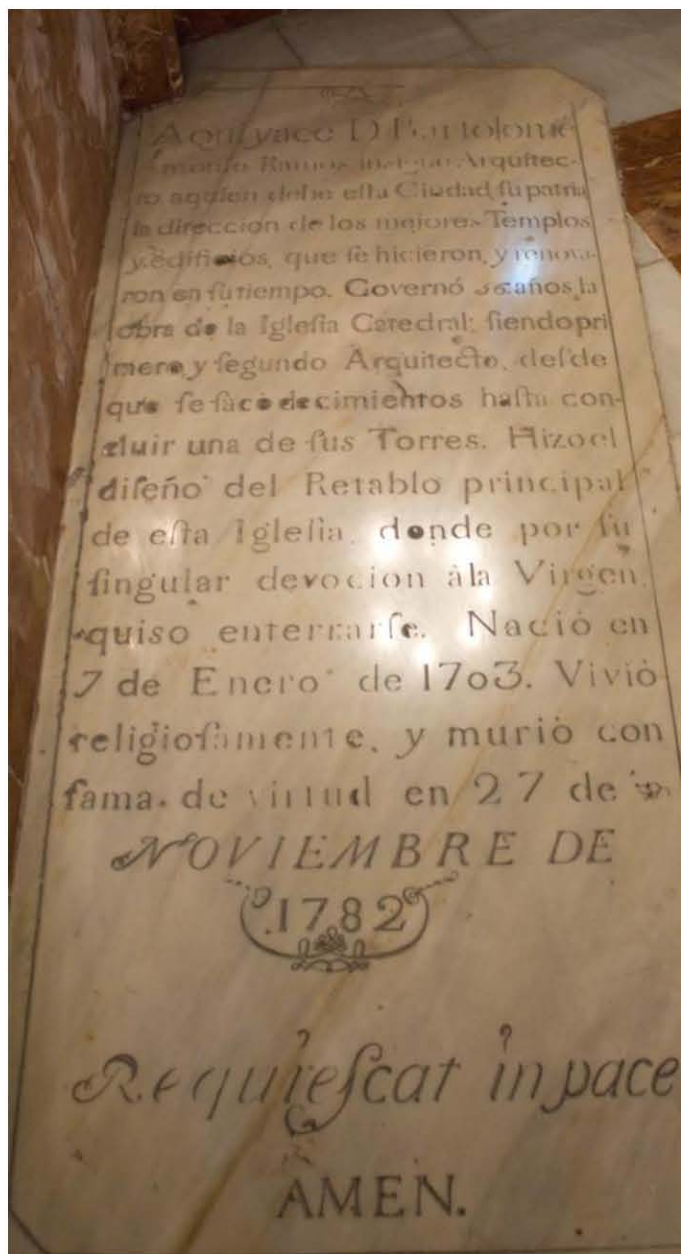 Aquí yace D. Bartolomé
Ramos insigne Arquitec-
to aquien debe eſta Ciudad ſu patria
la direccion de los mejores Templos
y edificios, que ſe hicieron, y renova-
ron en ſu tiempo. Governó años, la
obra de la Igleſia Catedral; ſiendo pri
mero y ſegundo Arquitecto, deſde
que ſe ſacò de cimientos haſta con-
cluir una de ſus Torres. Hizo el
diſeño del Retablo principal
de eſta Igleſia, donde por ſu
ſingular devocion àla Virgen,
quiso enterrarſe. Nació en
7 de Enero de 1703. Vivió
religioſamente, y murió con
fama de virtud en 27 de
NOVIEMBRE DE
1782
Requieſcat in pace
AMEN.